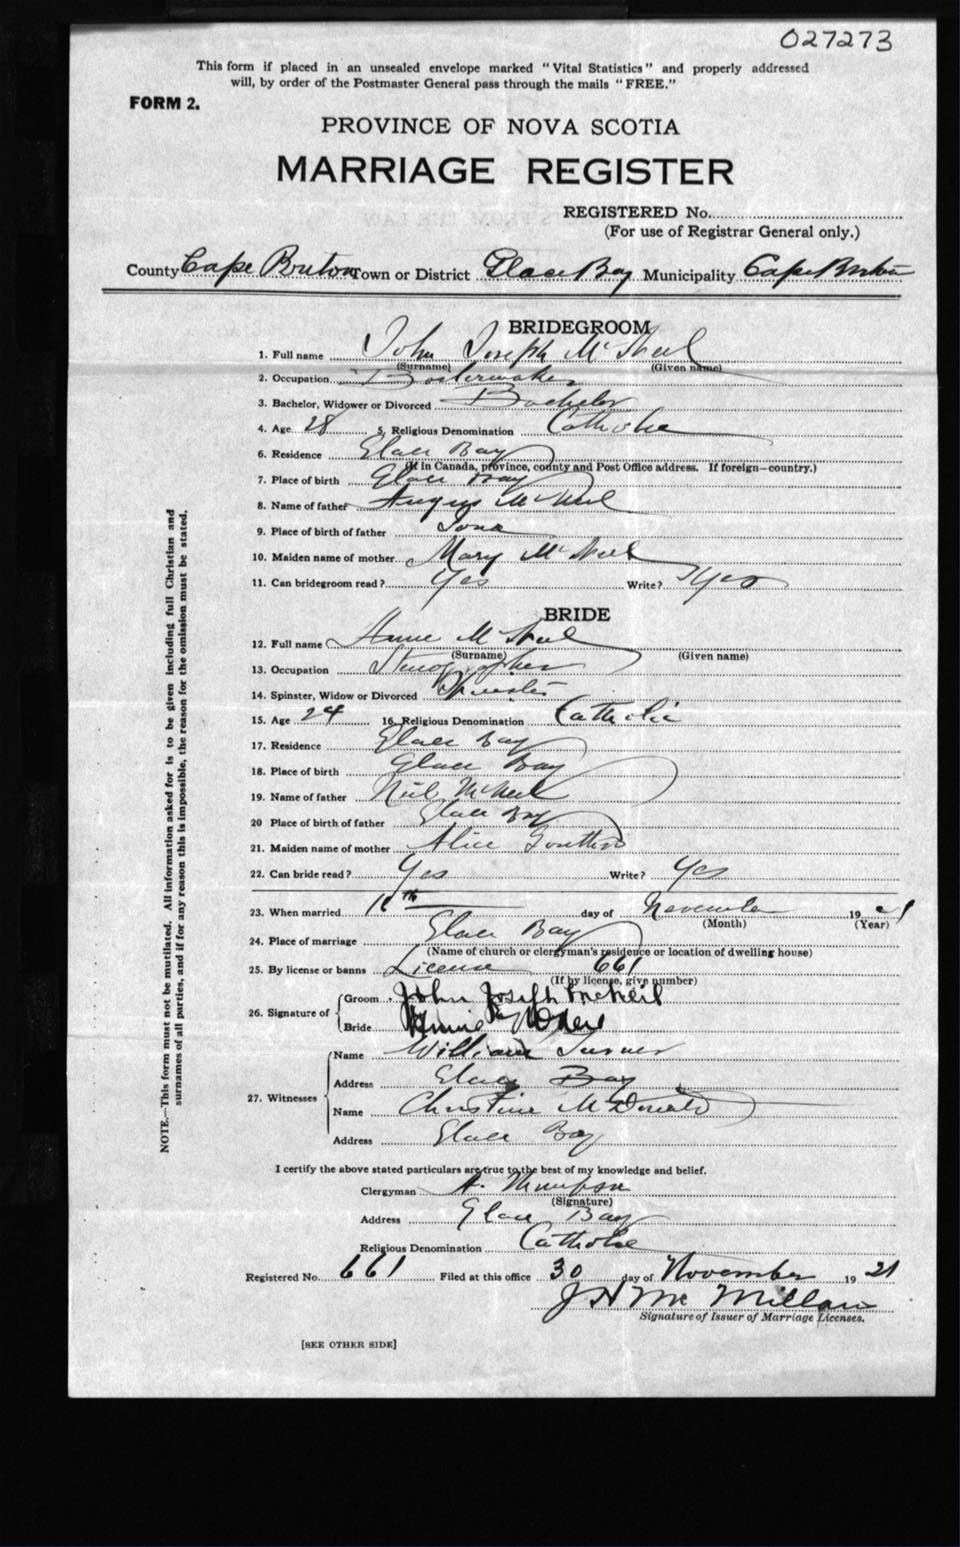 027273
This form if placed in an unsealed envelope marked "Vital Statistics" and properly addressed
will, by order of the Postmaster General pass through the mails "FREE."
FORM 2.
PROVINCE OF NOVA SCOTIA
MARRIAGE REGISTER
REGISTERED No.
(For use of Registrar General only.)
County Cape Breton Town or District Glace Bay Municipality Cape Breton
BRIDEGROOM
1. Full name John Joseph McNeil
(Surname) (Given name)
2. Occupation Boilermaker
3. Bachelor, Widower or Divorced Bachelor
4. Age 28 5. Religious Denomination Catholic
6. Residence Glace Bay
(If in Canada, province, county and Post Office address. If foreign—country.)
7. Place of birth Glace Bay
8. Name of father Angus McNeil
9. Place of birth of father Iona
10. Maiden name of mother Mary McNeil
11. Can bridegroom read? Yes Write? Yes
BRIDE
12. Full name Annie McNeil
(Surname) (Given name)
13. Occupation Stenographer
14. Spinster, Widow or Divorced Spinster
15. Age 24 16. Religious Denomination Catholic
17. Residence Glace Bay
18. Place of birth Glace Bay
19. Name of father Neil McNeil
20 Place of birth of father Glace Bay
21. Maiden name of mother Alice
22. Can bride read? Yes Write? Yes
23. When married th day of November 1921
(Month) (Year)
24. Place of marriage Glace Bay
(Name of church or clergyman's residence or location of dwelling house)
25. By license or banns License 661
(If by license, give number)
26. Signature of
Groom John Joseph McNeil
Bride Annie McNeil
27. Witnesses
Name William Turner
Address Glace Bay
Name Christine McDonald
Address Glace Bay
I certify the above stated particulars are true to the best of my knowledge and belief.
Clergyman A. Thompson
(Signature)
Address Glace Bay
Religious Denomination Catholic
Registered No. 661 Filed at this office 30 day of November 1921
J H McMillan
Signature of Issuer of Marriage Licenses.
[SEE OTHER SIDE]
NOTE.—This form must not be mutilated. All information asked for is to be given including full Christian and
surnames of all parties, and if for any reason this is impossible, the reason for the omission must be stated.